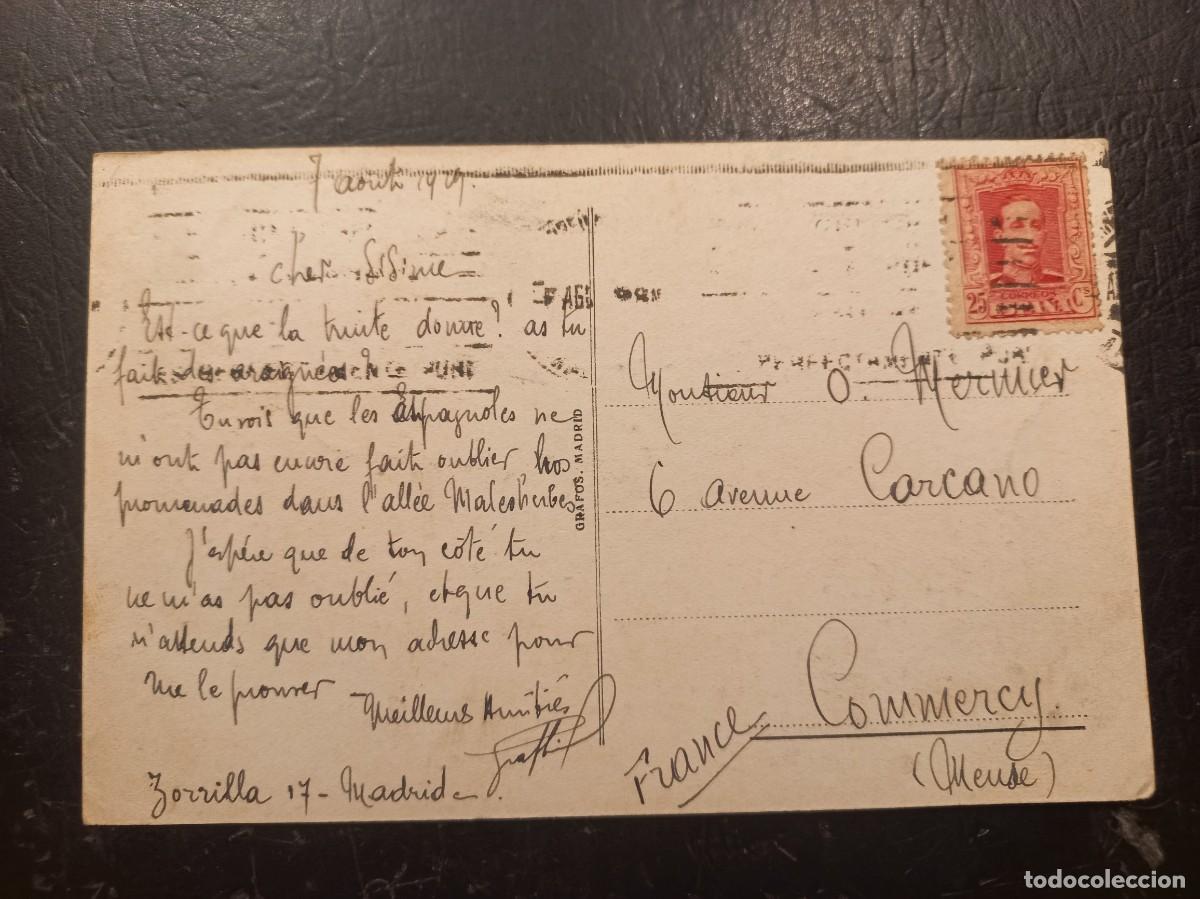 7 août 1929.
Cher
Est-ce que la truite donne? as tu
fait des araignées?
Tu vois que les Espagnoles ne
m'ont pas encore fait oublier nos
promenades dans l'allée Malesherbes
J'espère que de ton côté tu
ne m'as pas oublié, et que tu
n'attends que mon adresse pour
me le prouver
Meilleures Amitiés
Zorrilla 17 - Madrid.
GRAFOS. MADRID
CORREOS
25 Cs
Monsieur O. Mermier
6 avenue Carcano
Commercy
(Meuse)
France
todocoleccion